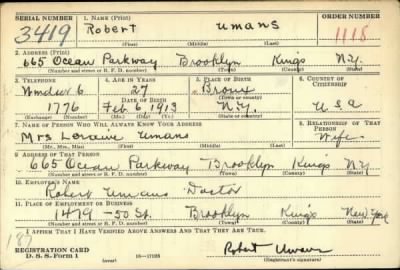 SERIAL NUMBER 1. NAME (Print) ORDER NUMBER
3419 Robert Umans 1118
(First) (Middle) (Last)
2. ADDRESS (Print)
665 Ocean Parkway Brooklyn Kings N.Y.
(Number and street or R. F. D. number) (Town) (County) (State)
3. TELEPHONE 4. AGE IN YEARS 5. PLACE OF BIRTH 6. COUNTRY OF CITIZENSHIP
Windsor 6 27 Bronx
DATE OF BIRTH (Town or county)
1776 Feb 6 1913 N.Y. U.S.A
(Exchange) (Number) (Mo.) (Day) (Yr.) (State or country)
7. NAME OF PERSON WHO WILL ALWAYS KNOW YOUR ADDRESS 8. RELATIONSHIP OF THAT PERSON
Mrs Loraine Umans Wife
(Mr., Mrs., Miss) (First) (Middle) (Last)
9. ADDRESS OF THAT PERSON
665 Ocean Parkway Brooklyn Kings NY
(Number and street or R. F. D. number) (Town) (County) (State)
10. EMPLOYER'S NAME
Robert Umans Doctor
11. PLACE OF EMPLOYMENT OR BUSINESS
1479 - 50 St. Brooklyn Kings New York
(Number and street or R. F. D. number) (Town) (County) (State)
I AFFIRM THAT I HAVE VERIFIED ABOVE ANSWERS AND THAT THEY ARE TRUE.
REGISTRATION CARD Robert Umans
D. S. S. Form 1 (over) 16-17105 (Registrant's signature)